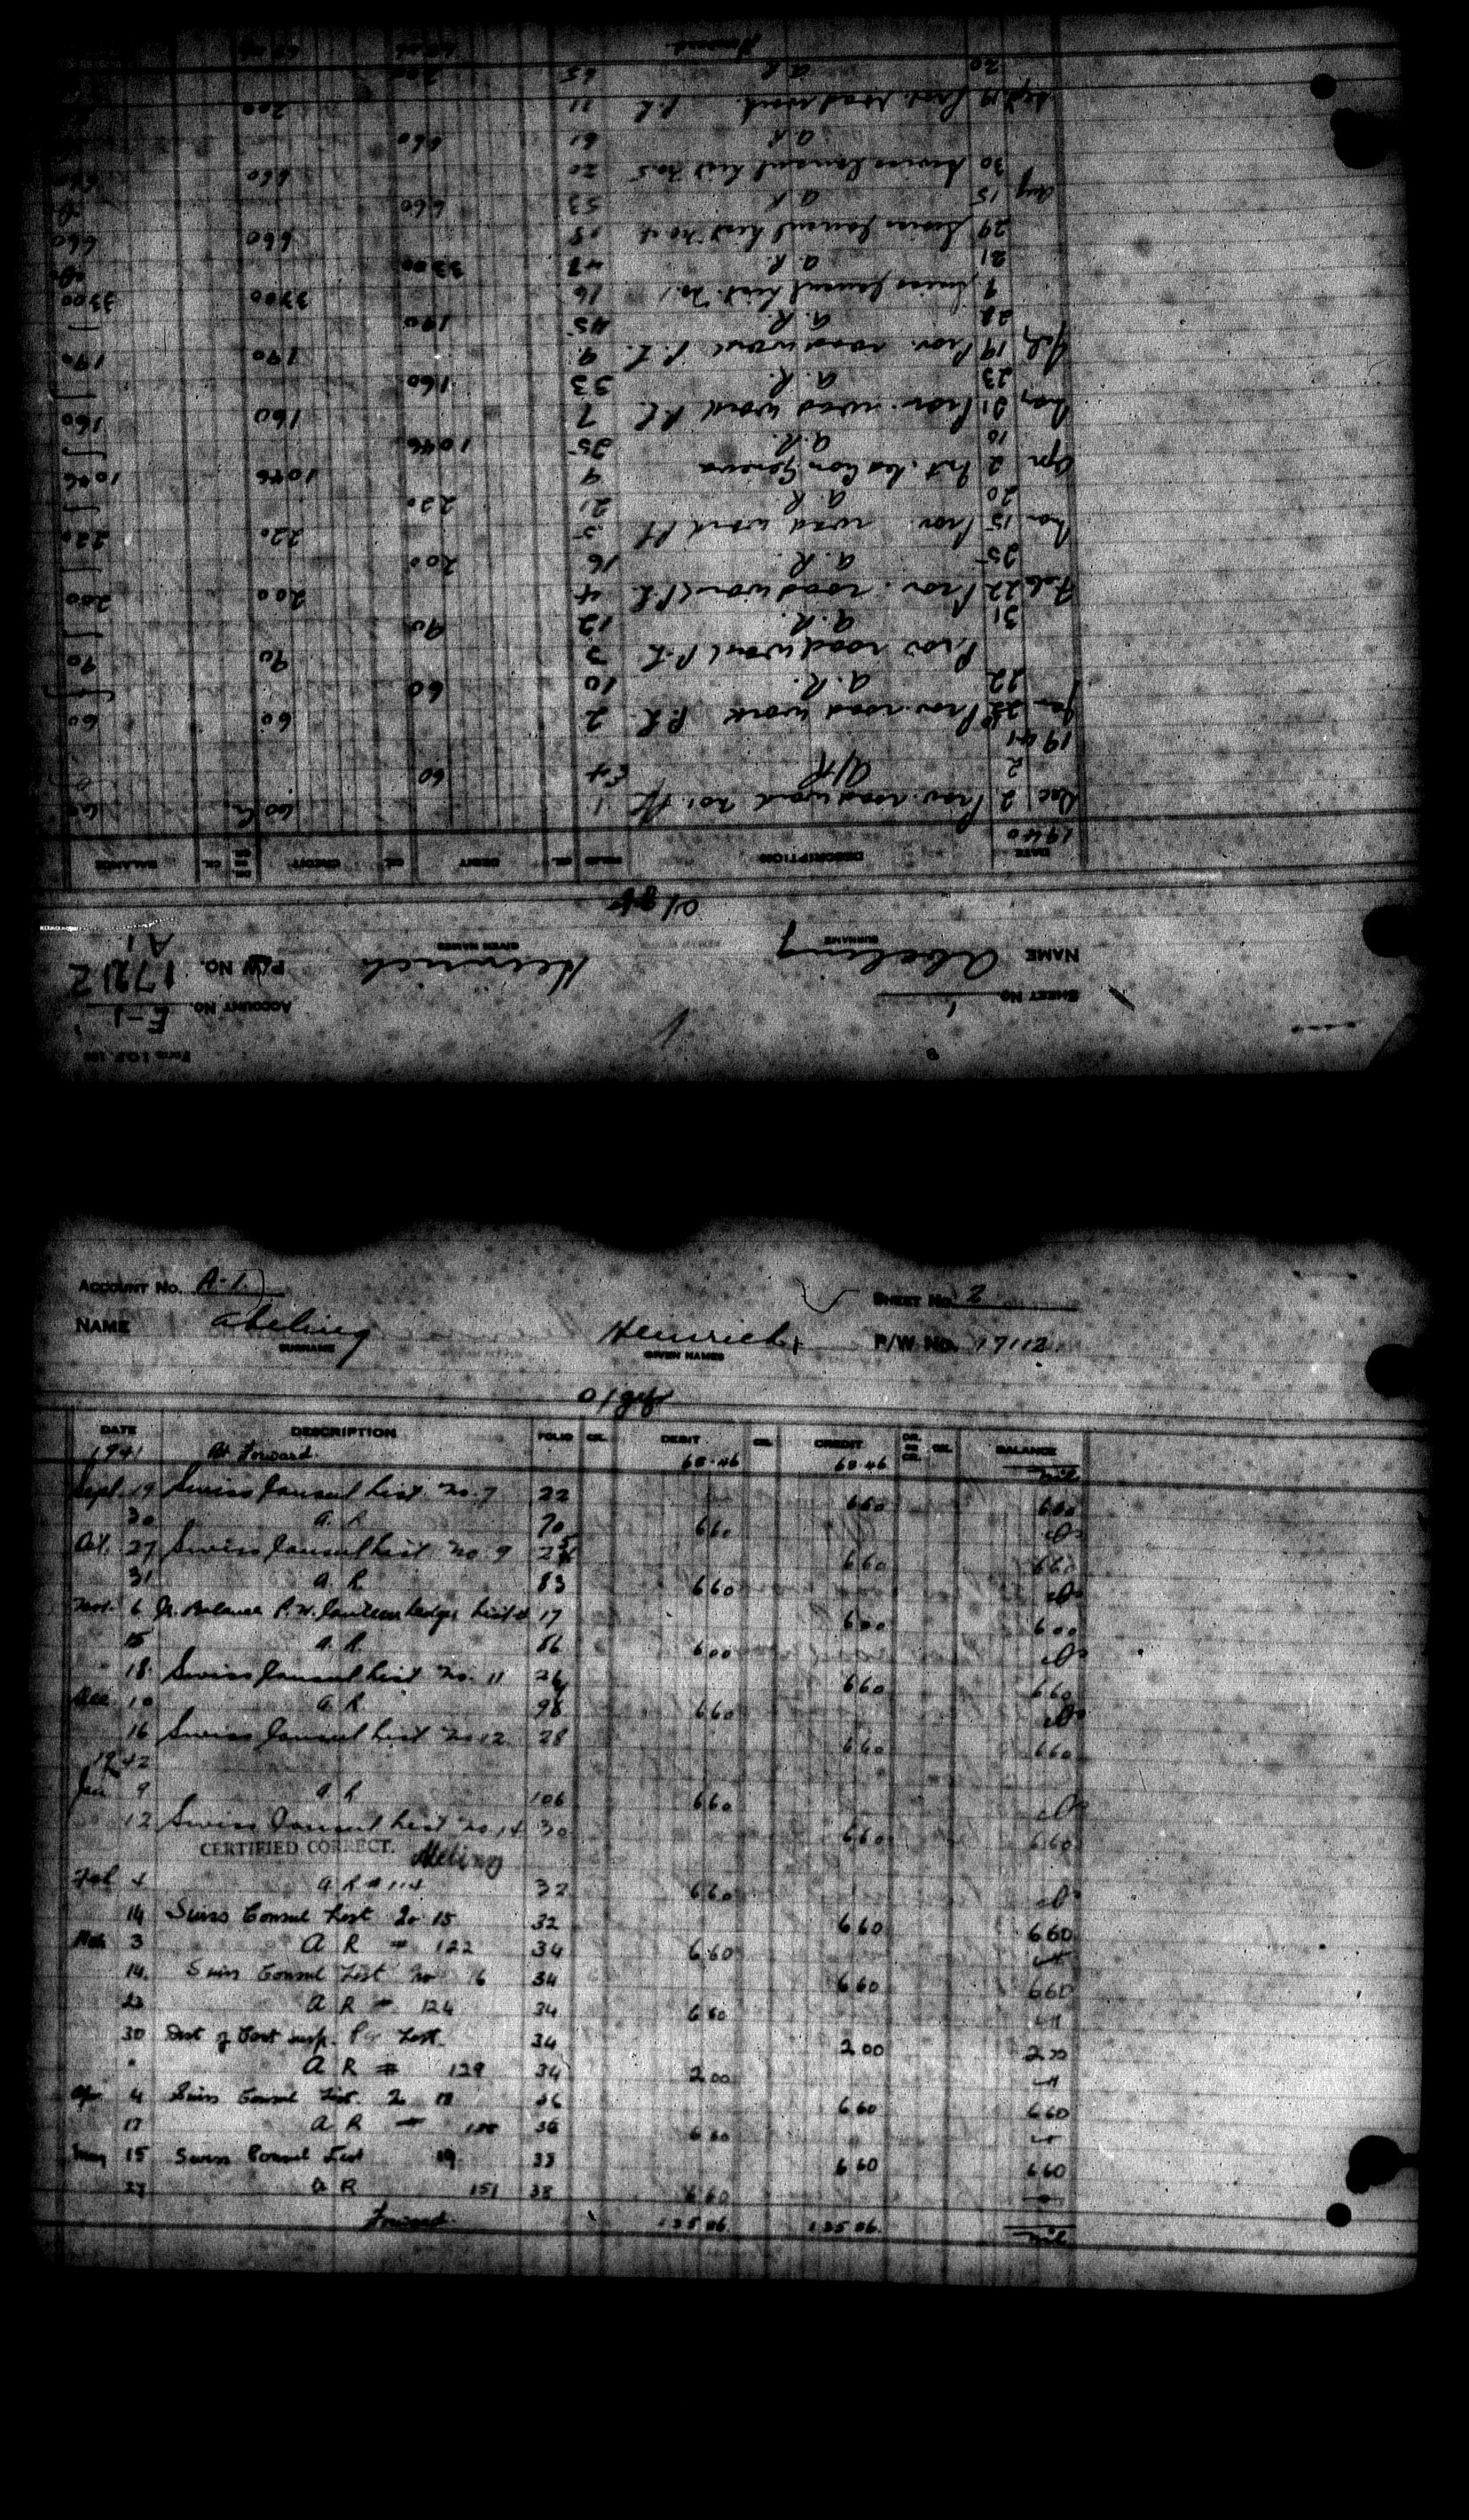 Form I.O.P. 
SHEET No. 1 ACCOUNT NO. E-1
NAME Abeling Heinrich P/W NO. 17212
SURNAME GIVEN NAMES A1
DATE DESCRIPTION FOLIO CK. DEBIT CK. CREDIT DR. OR CR. CK. BALANCE
1940
Dec 2 Prov. road work 1 60 60
2 A/R 60
1941
Jan 22 Prov. road work P.L. 2 60 60
22 A.R. 10 60
Prov road work P.L. 3 90 90
31 A.R. 12 90
Feb 22 Prov. road work P.L. 4 200 200
25 A.R. 16 200
Mar 15 Prov. road work PL 5 220 220
20 A.R. 21 220
Apr 2 Geneva 4 1046 1046
10 A.R. 25 1046
May 21 Prov. road work P.L. 7 160 160
23 A.R. 33 160
July 19 Prov. road work P.L. 9 190 190
22 A.R. 45 190
9 Swiss Consul List No. 1 16 3300 3300
21 A.R. 47 3300
29 Swiss Consul List No 4 18 660 660
Aug 15 A R 53 660
30 Swiss Consul List No 5 20 660 660
A R 61 660
Sept 19 Prov. road work. P.L. 11 200
20 A R 65 200
Forward
ACCOUNT No. A-1 SHEET No. 2
NAME Abeling Heinrich P/W No. 17112
SURNAME GIVEN NAMES
DATE DESCRIPTION FOLIO CK. DEBIT CK. CREDIT DR. OR CR. CK. BALANCE
1941 Bt Forward. 68.46 68.46 nil
Sept. 19 Swiss Consul List No. 7 22 660 660
30 A. R 70 660
Oct. 27 Swiss Consul List No. 9 25 660 660
31 A R 83 660
Nov. 6 Tr. Balance P.W. Canteen Ledger List 17 600 600
15 A. R. 86 600
18. Swiss Consul List No. 11 26 660 660
Dec. 10 A R 98 660
16 Swiss Consul List No 12 28 660 660
1942
Jan 9 A R 106 660
12 Swiss Consul List No 14 30 660 660
CERTIFIED CORRECT. Abeling
Feb 4 A R # 114 32 660
14 Swiss Consul List No 15 32 660 660
Mch 3 A R # 122 34 660
14. Swiss Consul List No 16 34 660 660
23 A R # 124 34 660
30 List 34 200 200
" A R # 129 34 200
Apr. 4 Swiss Consul List 36 660 660
17 A R # 36 660
May 15 Swiss Consul List 19 38 660 660
27 A R 151 38 660
Forward 135 06 135 06 nil